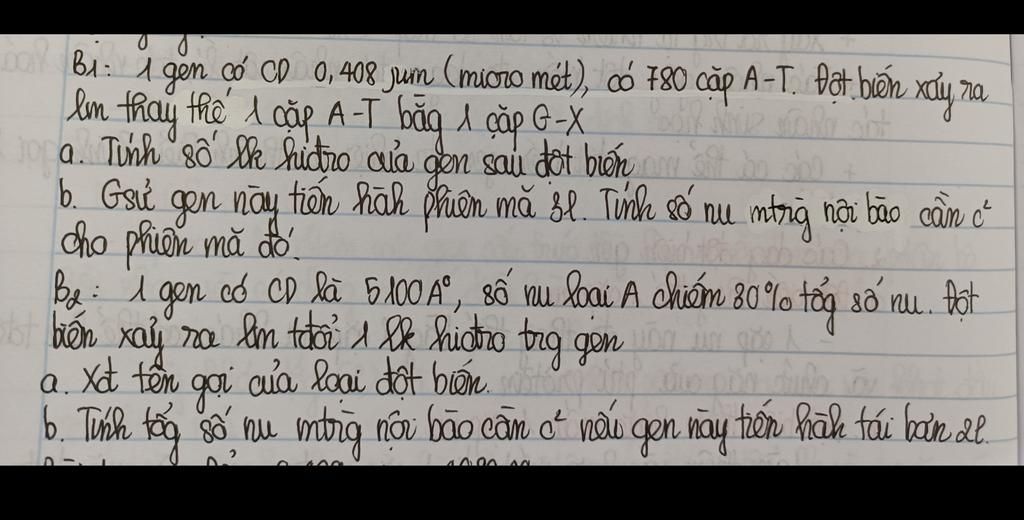 B1: 1 gen có CD 0,408 µm (micro mét), có 780 cặp A-T. Đột biến xảy ra
lm thay thế 1 cặp A-T bằg 1 cặp G-X
a. Tính số lk hiđro của gen sau đột biến
b. Gsử gen này tiến hàh phiên mã 3l. Tính số nu mtrg nội bào cần c²
cho phiên mã đó.
B2: 1 gen có CD là 5100A°, số nu loại A chiếm 30% tổg số nu. Đột
biến xảy ra lm tđổi 1 lk hiđro trg gen
a. Xđ tên gọi của loại đột biến.
b. Tính tổg số nu mtrg nội bào cần c² nếu gen này tiến hàh tái bản 2l.